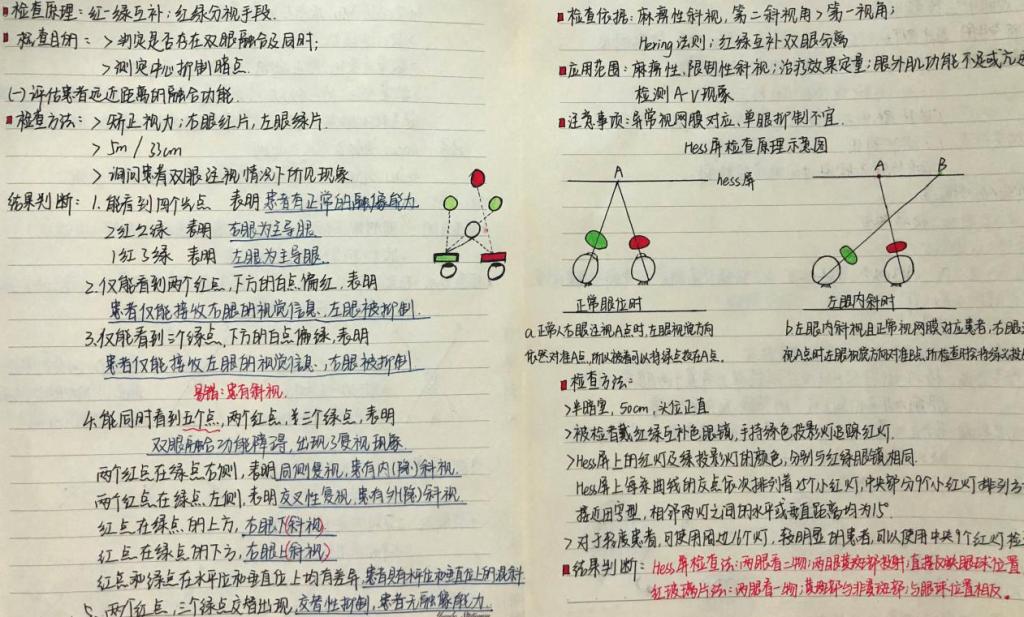 检查原理：红-绿互补；红绿分视手段.
检查目的：>判定是否存在双眼融合及同时;
>测定中心抑制暗点.
(一)评估患者远近距离的融合功能.
检查方法：>矫正视力；右眼红片，左眼绿片.
>5m / 33cm
>询问患者双眼注视情况下所见现象
结果判断：1.能看到四个光点 表明 患者有正常的融像能力
2红2绿 表明 右眼为主导眼
1红3绿 表明 左眼为主导眼.
2.仅能看到两个红点,下方的白点偏红,表明
患者仅能接收右眼的视觉信息,左眼被抑制.
3.仅能看到三个绿点,下方的白点偏绿,表明
患者仅能接收左眼的视觉信息,右眼被抑制
易错：患有斜视.
4.能同时看到五个点,两个红点,三个绿点,表明
双眼融合功能障碍,出现了复视现象
两个红点在绿点右侧,表明同侧复视,患有内(隐)斜视.
两个红点在绿点左侧,表明交叉性复视,患有外(隐)斜视
红点在绿点的上方,右眼下(斜视)
红点在绿点的下方,右眼上(斜视)
红点和绿点在水平位和垂直位上均有差异,患者既有水平位和垂直位上的斜
5.两个红点,三个绿点交替出现,交替性抑制,患者无融像能力.
检查依据：麻痹性斜视,第二斜视角>第一视角;
Hering法则；红绿互补双眼分离
应用范围：麻痹性、限制性斜视；治疗效果定量；眼外肌功能不足或亢进
检测A-V现象
注意事项：异常视网膜对应、单眼抑制不宜.
Hess屏检查原理示意图
A hess屏 A B
正常眼位时 左眼内斜时
a.正常人右眼注视A点时,左眼视觉方向
依然对准A点,所以被看可以将绿点投在A点.
b.左眼内斜视且正常视网膜对应患者,右眼注
视A点时左眼视觉方向对准B点,所检查时会将绿
检查方法：
>半暗室,50cm,头位正直
>被检者戴红绿互补色眼镜,手持绿色投影灯追踪红灯.
>Hess屏上的红灯及绿投影灯的颜色,分别与红绿眼镜相同.
Hess屏上每条曲线的交点依次排列着25个小红灯,中央部分9个小红灯排列
接近田字型,相邻两灯之间的水平或垂直距离均为15°
>对于轻度患者,可使用周边16个灯,较明显的患者,可以使用中央9个红灯检
结果判断：Hess屏检查法：两眼看二物；两眼黄斑部投射；直接反映眼球位置
红玻璃片法：两眼看一物；黄斑部与非黄斑部；与眼球位置相反.